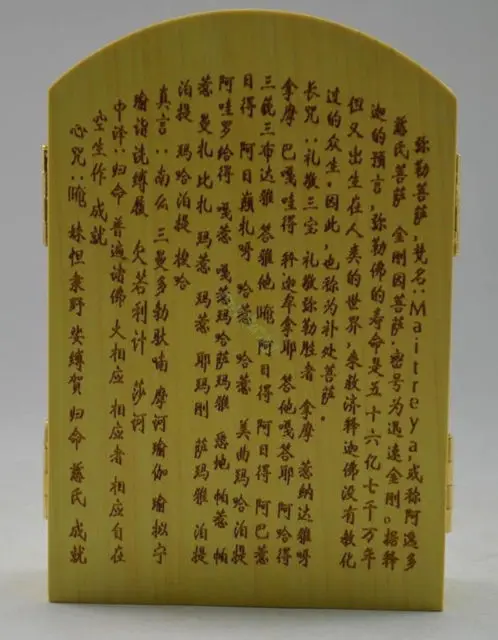 弥勒菩萨,梵名:Maitreya,或称阿逸多
慈氏菩萨 金刚因菩萨.密号为迅速金刚。据释
迦的预言,弥勒佛的寿命是五十六亿七千万年
但又出生在人类的世界,来救济释迦佛没有教化
过的众生.因此,也称为补处菩萨。
长咒:礼敬三宝 礼敬弥勒胜者 拿摩 惹纳达雅呀
拿摩 巴嘎哇得 释迦牟拿耶 答他嘎答耶 阿哈得
三藐三布达雅 答雅他 唵 阿日得 阿日得 阿巴惹
日得 阿日巅扎呀 哈惹 哈惹 美曲玛哈泊提
阿哇罗给得 嘎惹 嘎惹玛哈萨玛雅 悉地 帕惹 帕
惹 曼扎比扎 玛惹 玛惹 耶玛刚 萨玛雅 泊提
泊提 玛哈泊提 梭哈
真言:南么 三曼多勃驮喃 摩河瑜伽 瑜拟宁
瑜诣诜缚履 欠若利计 莎诃
中译:归命 普遍诸佛 大相应 相应者 相应自在
空生作 成就
心咒:唵 妹怛隶野 娑缚贺 归命 慈氏 成就